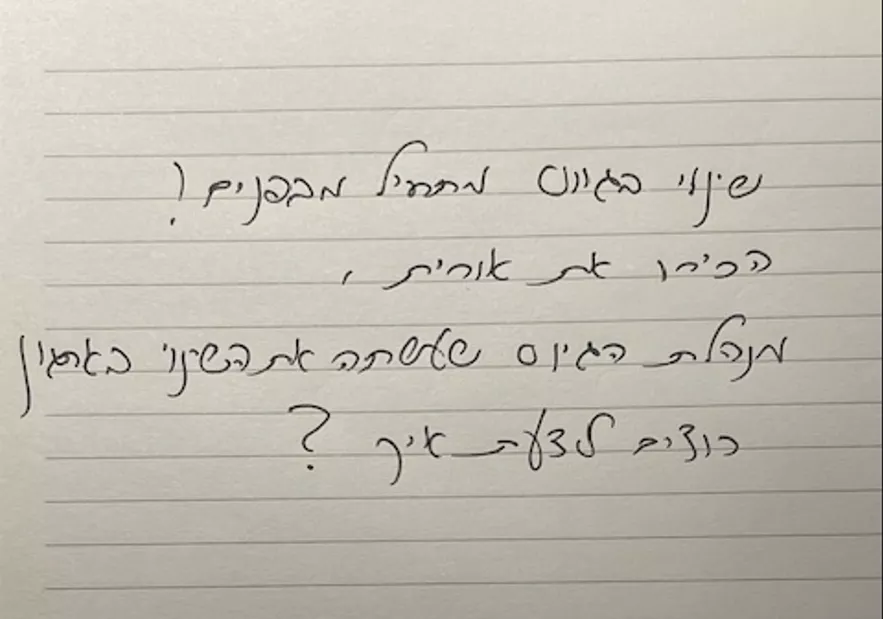 שינוי בגיוס מתחיל מבפנים!
הכירו את אורית,
מנהלת הגיוס שעשתה את השינוי בארגון
רוצים לדעת איך?